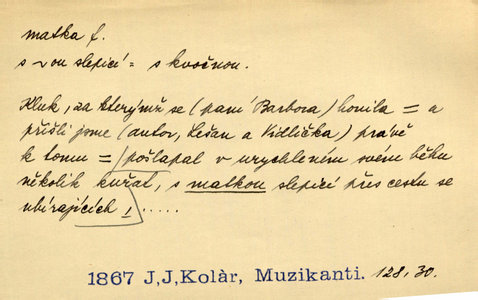 matka f.
s ~ou slepicí = s kvočnou.
Kluk, za kterýmž se (paní Barbora) honila = a
přišli jsme (autor, Lešan a Vidlička) právě
k tomu = pošlapal v urychleném svém běhu
několik kuřat, s matkou slepicí přes cestu se
ubírajících, .....
1867 J,J,Kolàr, Muzikanti. 128, 30.